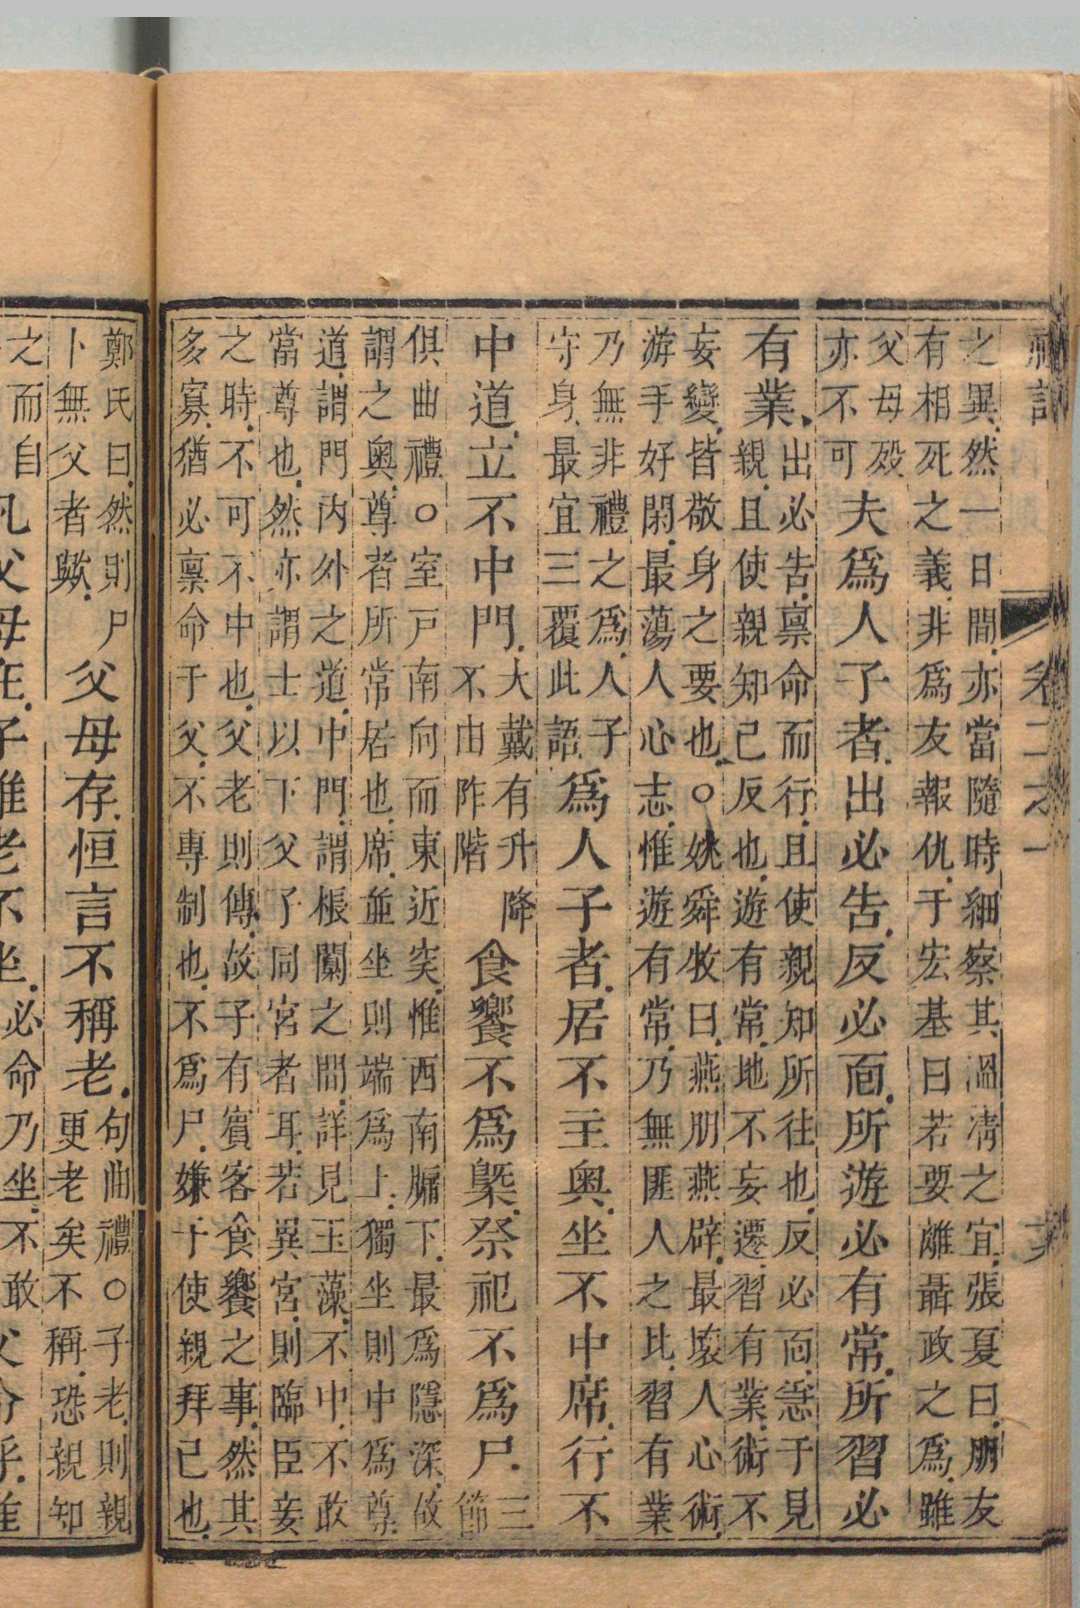 卷二之一
之異然一日間亦當隨時細察其溫凊之宜張夏曰朋友
有相死之義非爲友報仇于宏基曰若要離聶政之爲雖
父母歿
亦不可
夫爲人子者出必告反必面所遊必有常所習必
有業
出必告稟命而行且使親知所往也反必面恙于見
親且使親知己反也遊有常地不妄遷習有業術不
妄變皆敬身之要也○姚舜牧曰燕朋燕辟最壞人心術
游手好閑最蕩人心志惟遊有常乃無匪人之比習有業
乃無非禮之爲人子
守身最宜三覆此語
爲人子者居不主奧坐不中席行不
中道立不中門
大戴有升降
不由阼階
食饗不爲槩祭祀不爲尸
三
節
俱曲禮○室戶南向而東近突惟西南牖下最爲隱深故
謂之奧尊者所常居也席並坐則端爲上獨坐則中爲尊
道謂門內外之道中門謂棖闑之間詳見玉藻不中不敢
當尊也然亦謂士以下父子同宮者耳若異宮則臨臣妾
之時不可不中也父老則傳故子有賓客食饗之事然其
多寡猶必稟命于父不專制也不爲尸嫌于使親拜己也
鄭氏曰然則尸
卜無父者歟
父母存恒言不稱老
句曲禮○子老則親
更老矣不稱恐親知
之而自
凡父母在子雖老不坐
必命乃坐不敢